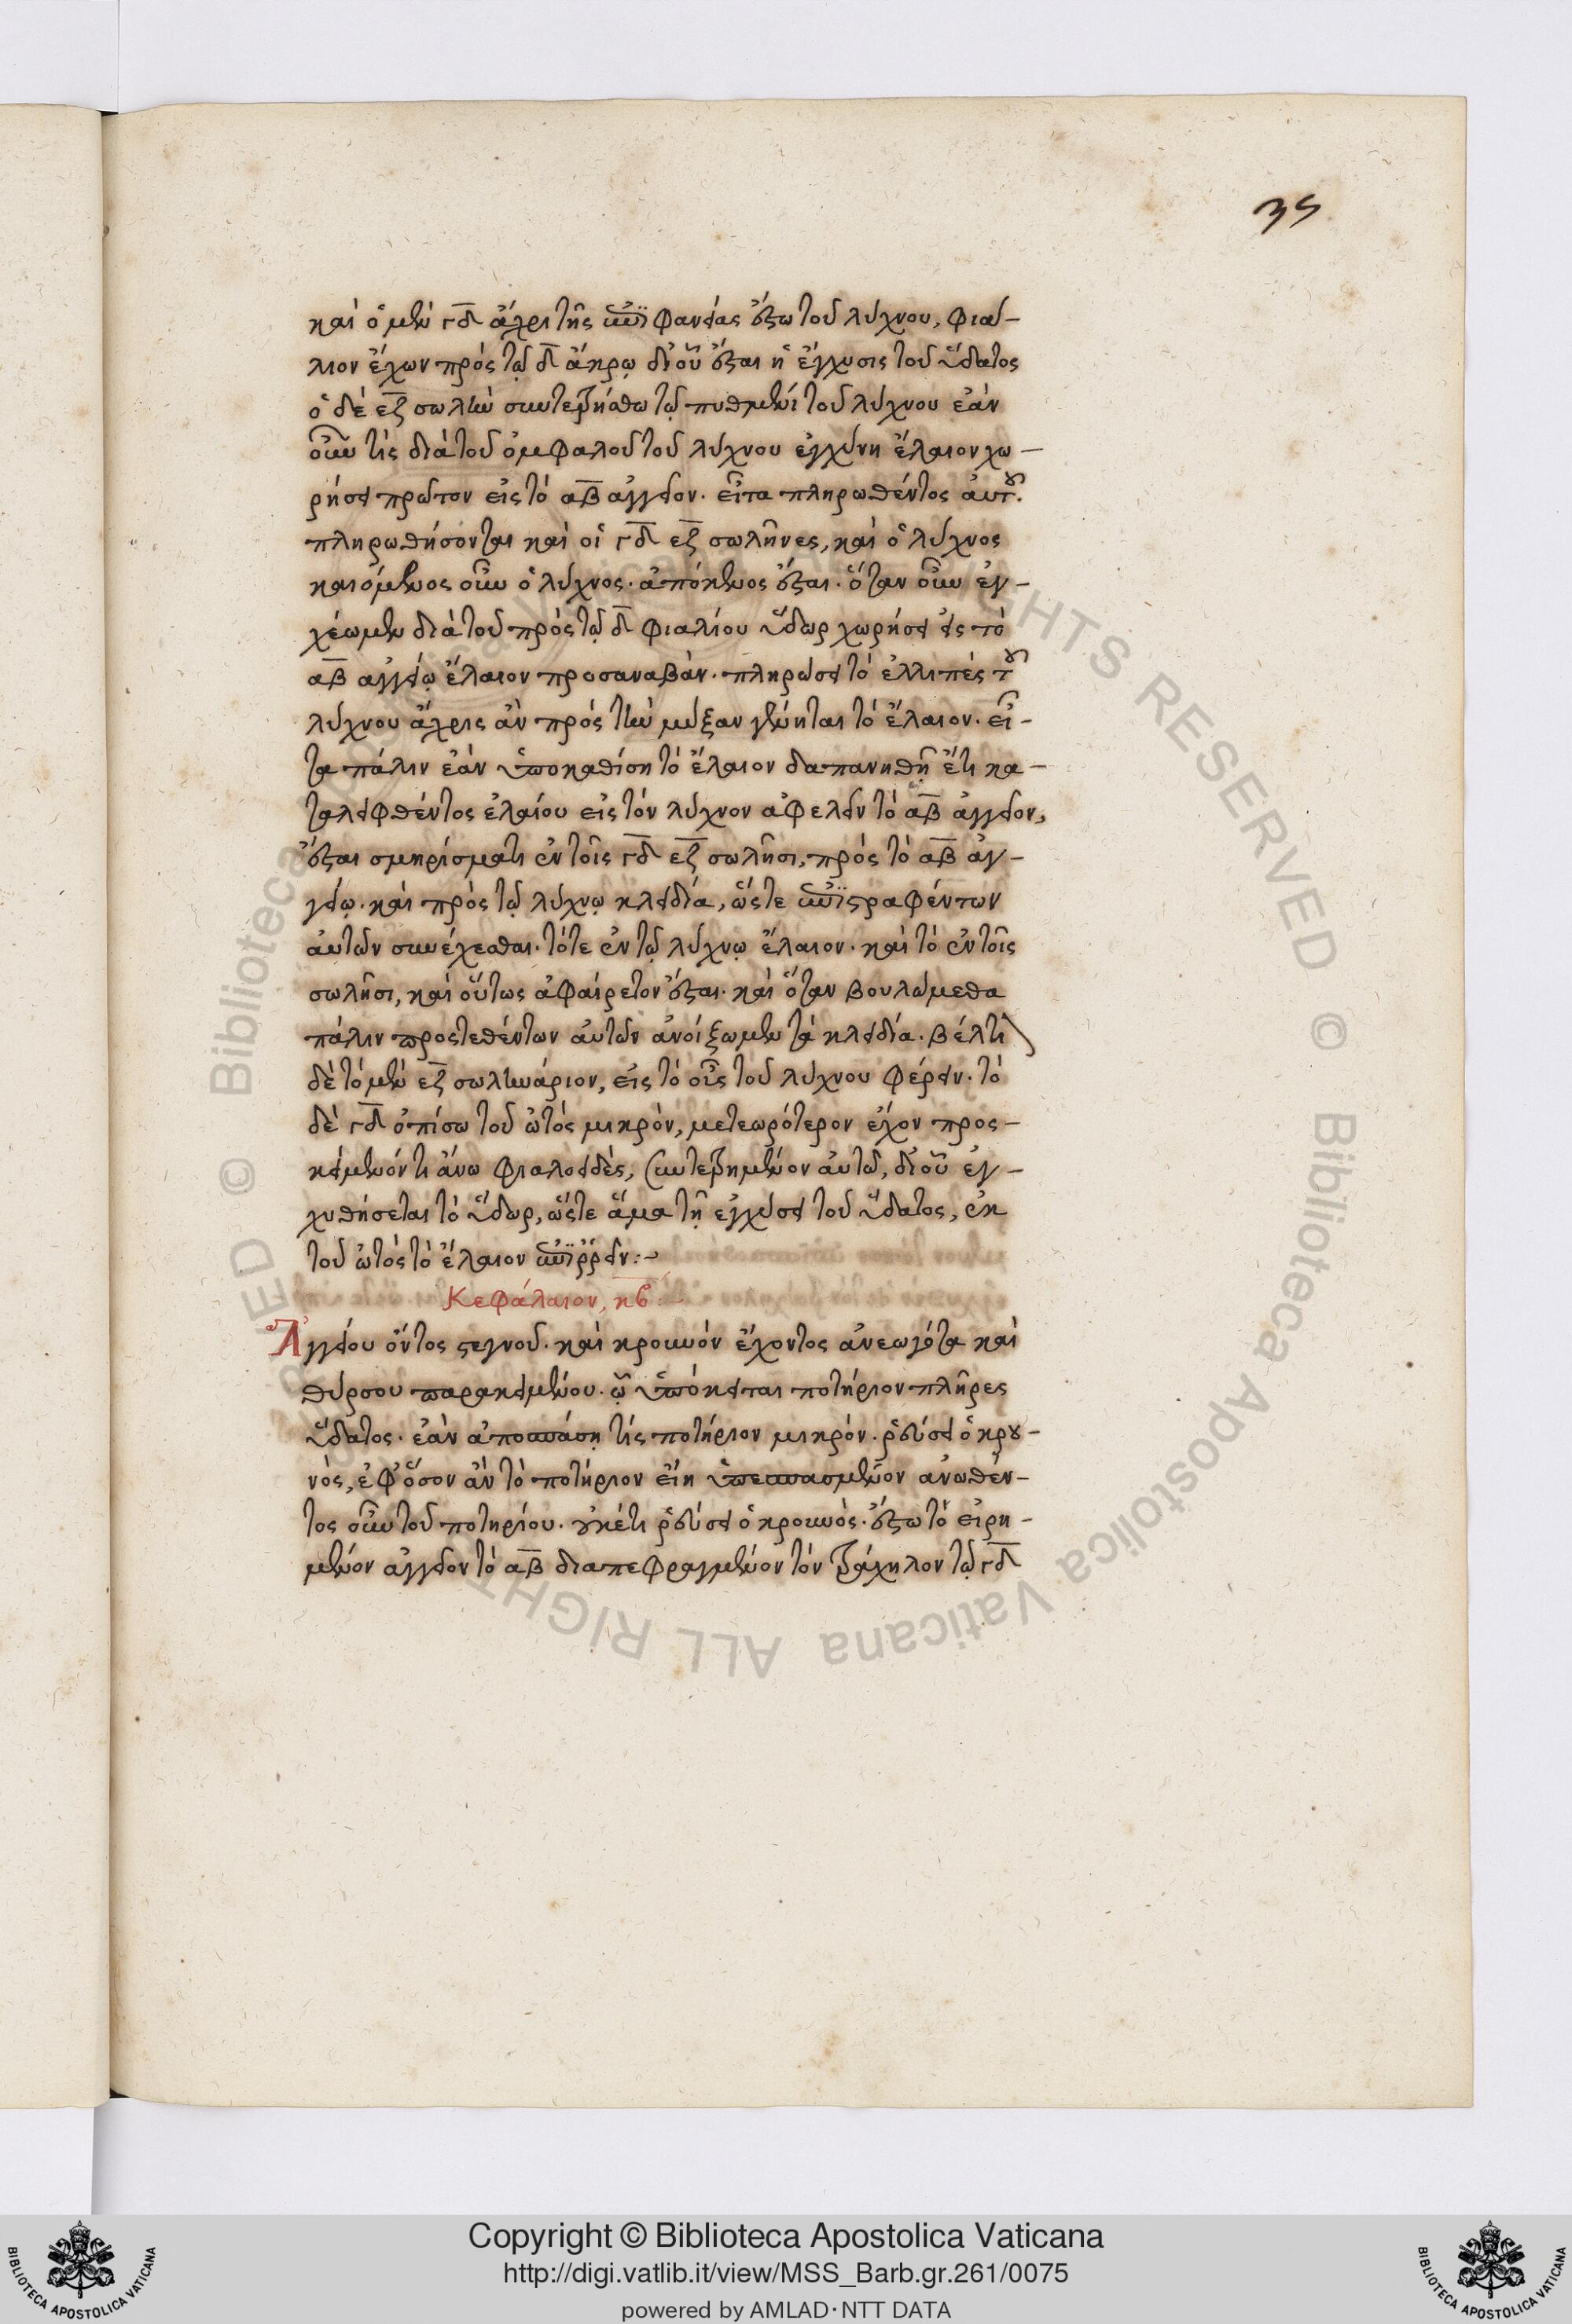 35
καὶ ὁ μὲν γδ ἄχρι τῆς ἐπιφανείας ἔστω τοῦ λύχνου, φιαλ-
λιον ἔχων πρὸς τῷ δ ἄκρῳ δι' οὗ ἔσται ἡ ἔγχυσις τοῦ ὕδατος
ὁ δὲ εζ σωλὴν συντετρήσθω τῷ πυθμένι τοῦ λύχνου ἐὰν
οὖν τὶς διὰ τοῦ ὀμφαλοῦ τοῦ λύχνου ἐγχύνη ἔλαιον χω-
ρήσει πρῶτον εἰς τὸ αβ ἀγγεῖον. εἶτα πληρωθέντος αὐτοῦ.
πληρωθήσονται καὶ οἱ γδ εζ σωλῆνες, καὶ ὁ λύχνος
καιόμενος οὖν ὁ λύχνος. ἀπόκενος ἔσται. ὅταν οὖν ἐγ-
χέωμεν διὰ τοῦ πρὸς τῷ δ φιαλίου ὕδωρ χωρήσει εἰς τὸ
αβ ἀγγείῳ ἔλαιον προσαναβὰν. πληρώσει τὸ ἐλλιπὲς τοῦ
λύχνου ἄχρις ἂν πρὸς τὴν μύξαν γένηται τὸ ἔλαιον. εἶ-
τα πάλιν ἐὰν ὑποκαθίση τὸ ἔλαιον δαπανηθῆ ἔτι κα-
ταλειφθέντος ἐλαίου εἰς τὸν λύχνον ἀφελεῖν τὸ αβ ἀγγεῖον,
ἔσται σμηρίσματι ἐν τοῖς γδ εζ σωλῆσι, πρὸς τὸ αβ ἀγ-
γείῳ. καὶ πρὸς τῷ λύχνῳ κλειδία, ὥστε ἐπιστραφέντων
αὐτῶν συνέχεσθαι. τότε ἐν τῷ λύχνῳ ἔλαιον. καὶ τὸ ἐν τοῖς
σωλῆσι, καὶ οὕτως ἀφαίρετον ἔσται. καὶ ὅταν βουλώμεθα
πάλιν προστεθέντων αὐτῶν ἀνοίξωμεν τὰ κλειδία. βέλτι
δὲ τὸ μὲν εζ σωληνάριον, εἰς τὸ οὖς τοῦ λύχνου φέρειν. τὸ
δὲ γδ ὀπίσω τοῦ ὠτὸς μικρὸν, μετεωρότερον ἔχον προσ-
κείμενόν τι ἄνω φιαλοειδὲς, συντετρημένον αὐτῶ, δι' οὗ ἐγ-
χυθήσεται τὸ ὕδωρ, ὥστε ἅμα τῆ ἐγχύσει τοῦ ὕδατος, ἐκ
τοῦ ὠτὸς τὸ ἔλαιον ἐπιρρεῖν:~
Κεφάλαιον, κβ:~
Ἀγγείου ὄντος στεγνοῦ. καὶ κρουνὸν ἔχοντος ἀνεωγότα καὶ
θύρσου παρακειμένου. ᾧ ὑπόκειται ποτήριον πλῆρες
ὕδατος. ἐὰν ἀποσπάση τίς ποτήριον μικρόν. ῥεύσει ὁ κρου-
νὸς, ἐφ' ὅσον ἂν τὸ ποτήριον εἴη ὑπεσπασμένον ἀνωθέν-
τος οὖν τοῦ ποτηρίου. οὐκέτι ῥεύσει ὁ κρουνός. ἔστω τὸ εἰρη-
μένον ἀγγεῖον τὸ αβ διαπεφραγμένον τὸν τράχηλον τῷ γδ
Copyright © Biblioteca Apostolica Vaticana
http://digi.vatlib.it/view/MSS_Barb.gr.261/0075
powered by AMLAD·NTT DATA